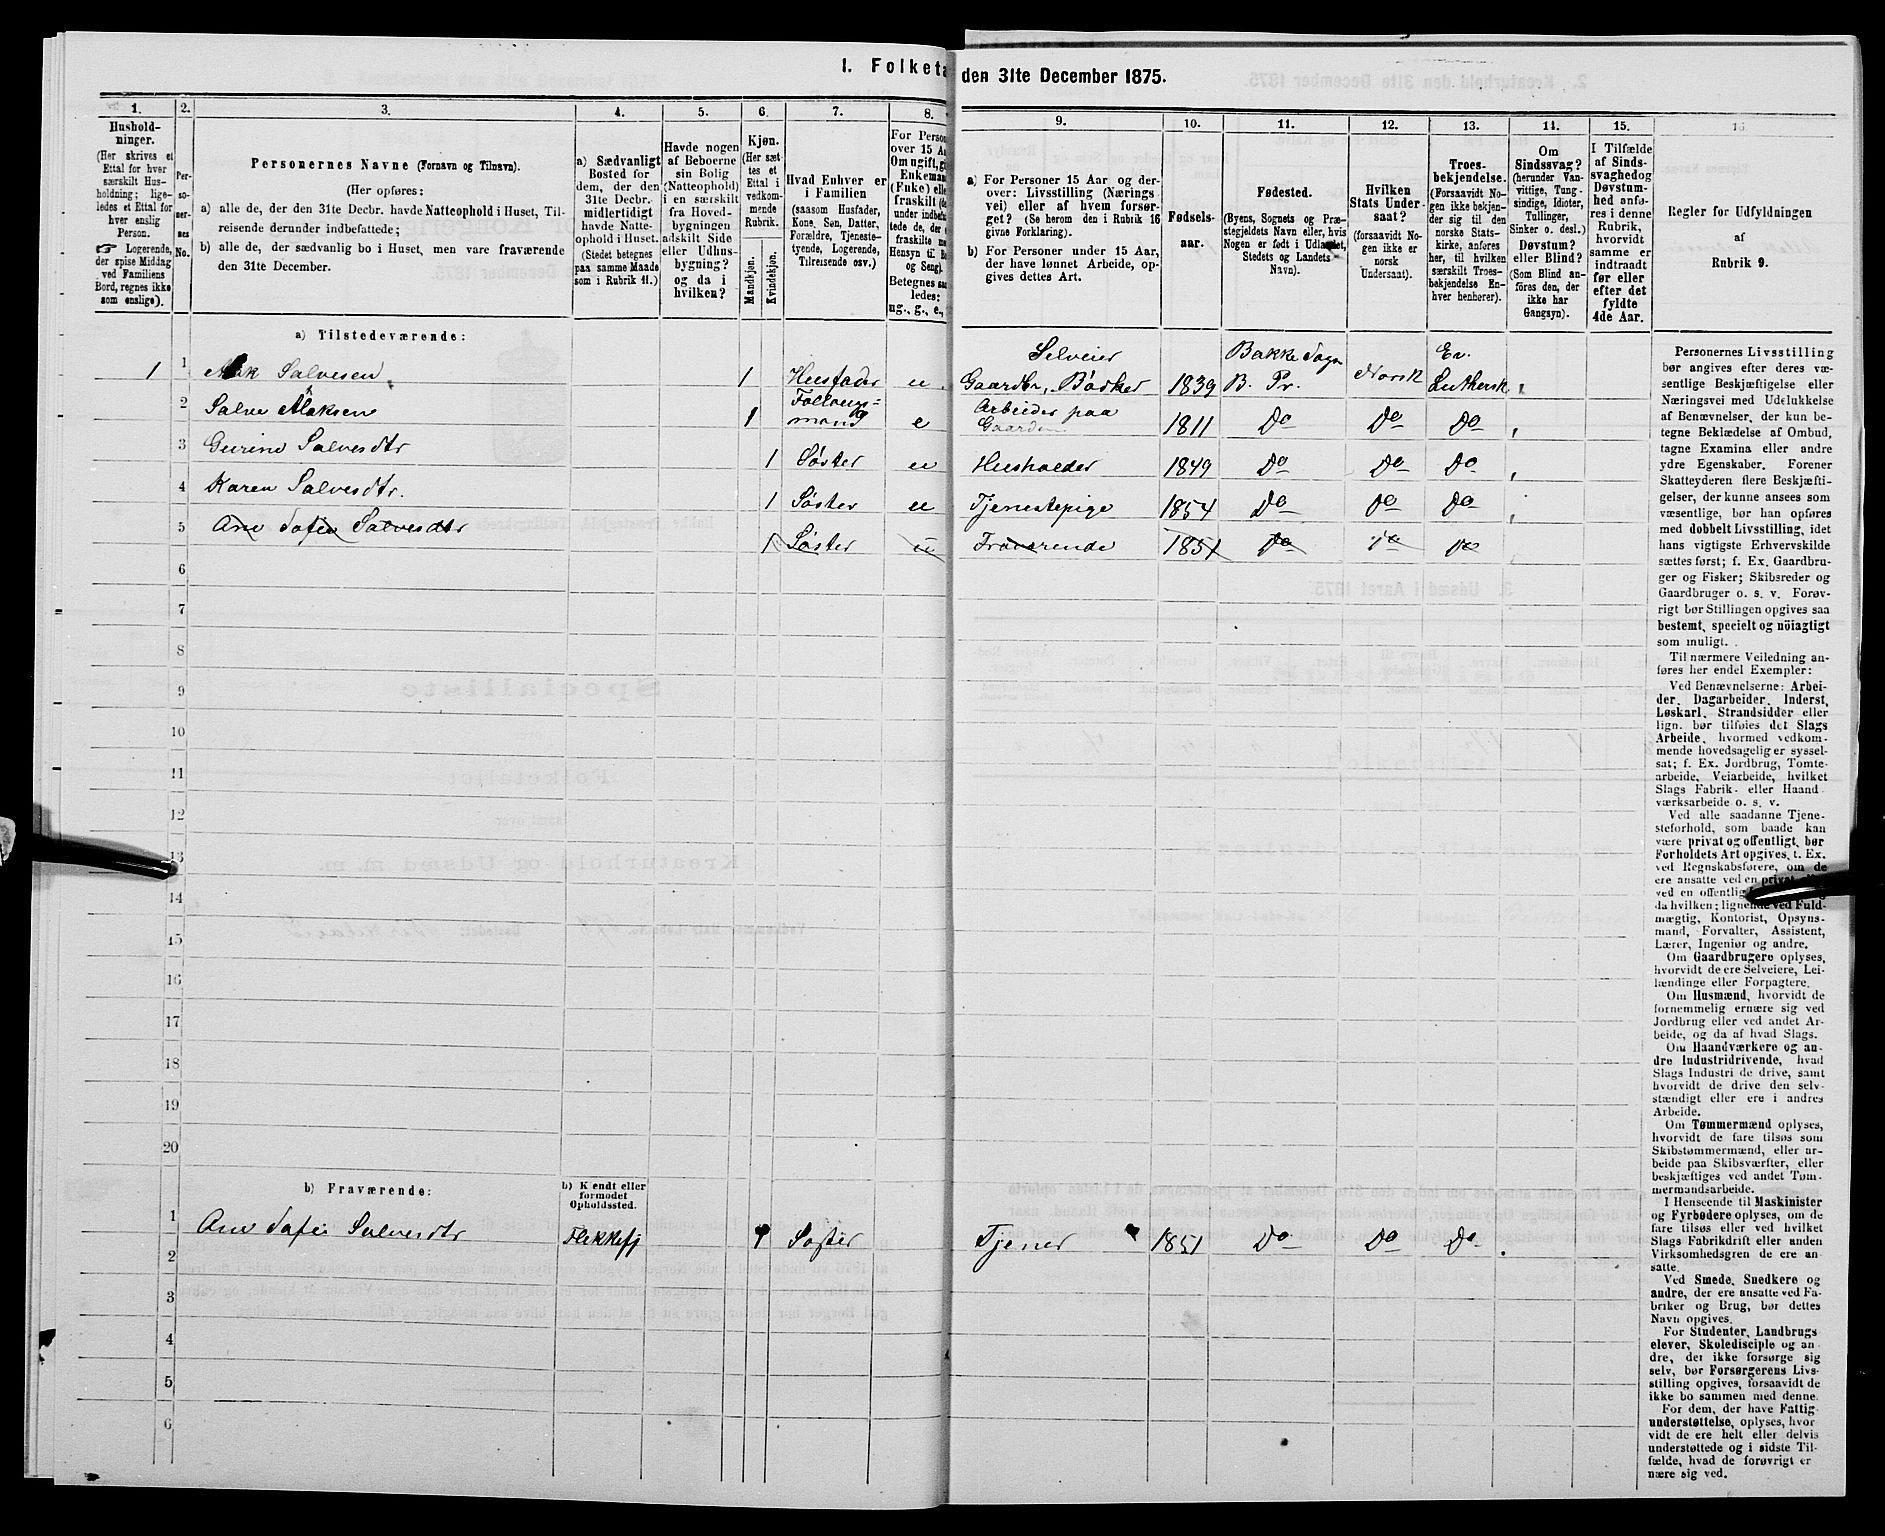 I. Folketæ
den 31te December 1875.
1.
2.
3.
4.
5.
6.
7.
8.
9.
10.
11.
12.
13.
14.
15.
16.
Hushold-
ninger.
(Her skrives et
Ettal for hver
særskilt Hus-
holdning; lige-
ledes et Ettal for
hver enslig
Person.
☞ Logerende,
der spise Middag
ved Familiens
Bord, regnes ikke
som enslige).
Per-
so-
ner-
nes
No.
Personernes Navne (Fornavn og Tilnavn).
(Her opføres:
a) alle de, der den 31te Decbr. havde Natteophold i Huset, Til-
reisende derunder indbefattede;
b) alle de, der sædvanlig bo i Huset, men vare fraværende
den 31te December.
a) Sædvanligt
Bosted for
dem, der den
31te Decbr.
midlertidigt
havde Natte-
ophold i Huset.
(Stedet betegnes
paa samme Maade
som i Rubrik 11.)
Havde nogen
af Beboerne
sin Bolig
(Natteophold)
i en særskilt
fra Hoved-
bygningen
adskilt Side
eller Udhus-
bygning?
og da i
hvilken?
Kjøn.
(Her sæt-
tes et
Ettal i
vedkom-
mende
Rubrik.
Mandkjøn.
Kvindekjøn.
Hvad Enhver er
i Familien
(saasom Husfader,
Kone, Søn, Datter,
Forældre, Tjeneste-
tyende, Logerende,
Tilreisende osv.)
For Person
over 15 A
Om ugift, gi
Enkeman
(Fuke) elle
fraskilt (de
under indbefa
tede de, der e
fraskilte n
Hensyn til B
og Seng).
Betegnes saa
ledes:
ug., g., e.,
a) For Personer 15 Aar og der-
over: Livsstilling (Nærings-
vei) eller af hvem forsør-
get? (Se herom den i Rubrik 16
givne Forklaring).
b) For Personer under 15 Aar,
der have lønnet Arbeide, op-
gives dettes Art.
Fødsels-
aar.
Fødested.
(Byens, Sognets og Præ-
stegjeldets Navn eller, hvis
Nogen er født i Udlandet,
Stedets og Landets
Navn).
Hvilken
Stats Under-
saat?
(forsaavidt No-
gen ikke er
norsk
Undersaat).
Troes-
bekjendelse.
(Forsaavidt No-
gen ikke bekjen-
der sig til den
norske Stats-
kirke, anføres
her, til hvilken
særskilt Troes-
bekjendelse En-
hver henhører).
Om
Sindssvag?
(herunder Van-
vittige, Tung-
sindige, Idioter,
Tullinger,
Sinker o. desl.)
Døvstum?
eller Blind?
(Som Blind an-
føres den, der
ikke har
Gangsyn).
I Tilfælde
af Sinds-
svaghed og
Døvstum-
hed anfø-
res i denne
Rubrik,
hvorvidt
samme er
indtraadt
før eller
efter det
fyldte
4de Aar.
Regler for Udfyldningen
af
Rubrik 9.
a) Tilstedeværende:
1 1 Aak Salvesen 1 Husfader u Selveier Gaardbr, Bødker 1839 Bakke Sogn B. Pr. Norsk Ev. Luthersk
2 Salve Aaksen 1 Føllougs=mand e Arbeider paa Gaarden 1811 Do Do Do
3 Gurine Salvesdtr 1 Søster u Husholder 1849 Do Do Do
4 Karen Salvesdtr. 1 Søster u Tjenestepige 1854 Do Do Do
5 Ane Sofie Salvesdtr 1 Søster u Fraværende 1851 Do Do Do
6
7
8
9
10
11
12
13
14
15
16
17
18
19
20
b) Fraværende:
b) Kjendt eller
formodet
Opholdssted.
1 Ane Sofie Salvesdtr Flekkefj 1 Søster Tjener 1851 Do Do Do
2
3
4
5
6
Personernes Livsstilling
bør angives efter deres væ-
sentlige Beskjæftigelse eller
Næringsvei med Udelukkelse
af Benævnelser, der kun be-
tegne Beklædelse af Ombud,
tagne Examina eller andre
ydre Egenskaber. Forener
Skatteyderen flere Beskjæfti-
gelser, der kunne ansees som
væsentlige, bør han opføres
med dobbelt Livsstilling, idet
hans vigtigste Erhvervskilde
sættes først; f. Ex. Gaardbru-
ger og Fisker; Skibsreder og
Gaardbruger o. s. v. Forøv-
rigt bør Stillingen opgives saa
bestemt, specielt og nöiagtigt
som muligt.
Til nærmere Veiledning an-
føres her endel Exempler:
Ved Benævnelserne: Arbei-
der, Dagarbeider, Inderst,
Løskarl, Strandsidder eller
lign. bør tilføies det Slags
Arbeide, hvormed vedkom-
mende hovedsagelig er syssel-
sat; f. Ex. Jordbrug, Tomte-
arbeide, Veiarbeide, hvilket
Slags Fabrik- eller Haand
værksarbeide o. s. v.
Ved alle saadanne Tjene-
steforhold, som baade kan
være privat og offentligt, bør
Forholdets Art opgives, t. Ex.
ved Regnskabsførere, om de
ere ansatte ved en privat
ved en offentlig
da hvilken; lignende ved Fuld-
mægtig, Kontorist, Opsyns-
mand, Forvalter, Assistent,
Lærer, Ingeniør og andre.
Om Gaardbrugere oplyses,
hvorvidt de ere Selveiere, Lei-
lændinge eller Forpagtere.
Om Husmænd, hvorvidt de
fornemmelig ernære sig ved
Jordbrug eller ved andet Ar-
beide, og da af hvad Slags.
Om Haandværkere og an-
dre Industridrivende, hvad
Slags Industri de drive, samt
hvorvidt de drive den selv-
stændigt eller ere i andres
Arbeide.
Om Tømmermænd oplyses,
hvorvidt de fare tilsøs som
Skibstømmermænd, eller ar-
beide paa Skibsværfter, eller
beskjæftiges ved andet Tøm-
mermandsarbeide.
I Henseende til Maskinister
og Fyrbødere oplyses, om de
fare tilsøs eller ved hvilket
Slags Fabrikdrift eller anden
Virksomhedsgren de ere an-
satte.
Ved Smede, Snedkere og
andre, der ere ansatte ved Fa-
briker og Brug, bør dettes
Navn opgives.
For Studenter, Landbrugs
elever, Skoledisciple og an-
dre, der ikke forsørge sig
selv, bør Forsørgerens Livs-
stilling opgives, forsaavidt de
ikke bo sammen med denne.
For dem, der have Fattig
understøttelse, oplyses, hvor
vidt de ere helt eller delvis
understøttede og i sidste Til-
fælde, hvad de forøvrigt er
nære sig ved.